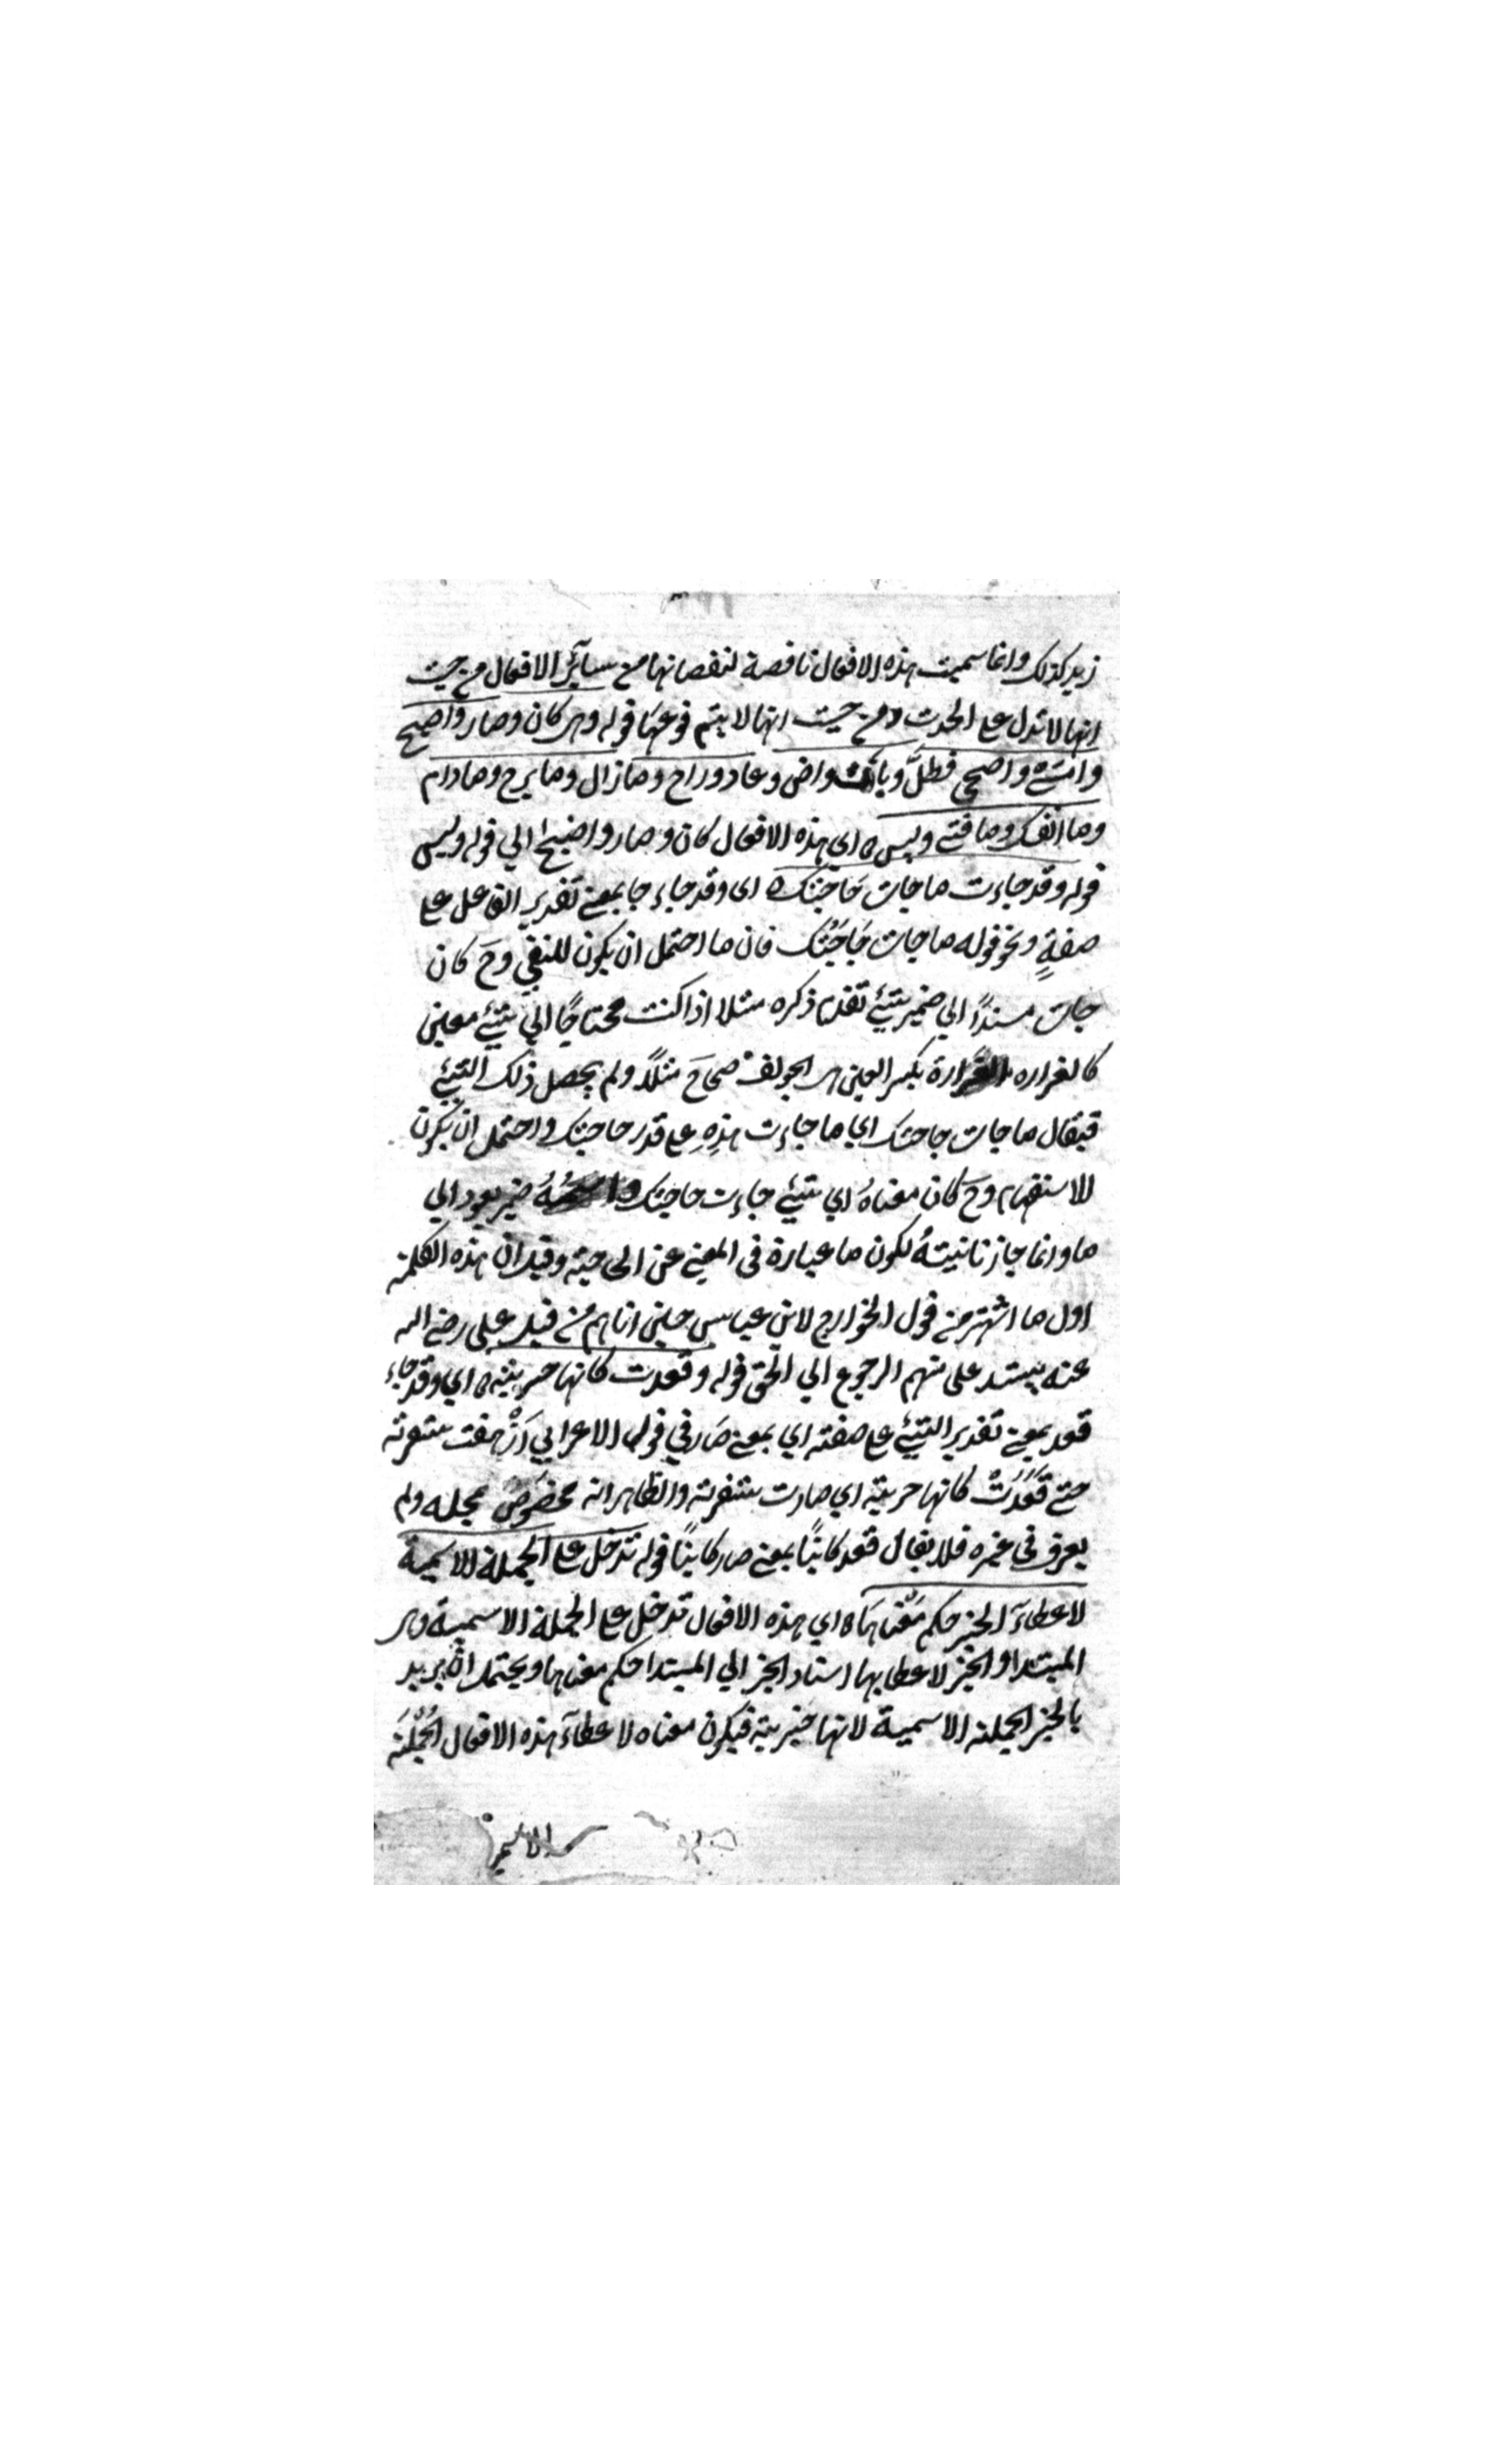 زيد كذلك وانما سميت هذه الافعال ناقصة لنقصانها من سآئر الافعال من حيث
انها لا تدل على الحدث ومن حيث انها لا يتم فوعها قوله وهى كان وصار واصبح
وامسى واضحى وظلّ وبات واض وعاد وراح وما زال وما برح وما دام
وما انفك وما فتئ وليس اى هذه الافعال كان وصار واصبح الي قوله وليس
قوله وقد جاءت ما جات حَاجَتُكَ اى وقد جاء جا بمعنى تقدير الفاعل على
صفةٍ ونحو قوله ما جات حَاجَتُك فان ما احتمل ان يكون للنفي وحَ كان
جات مسندًا الي ضمير شيئ تقدم ذكره مثلا اذا كنت محتاجًا الي شيئ معين
كالغراره الغرارة بكسر الغين هى الجولف صحاحَ مثلًا ولم يحصل ذلك الشيئ
فيقال ما جات حاجتك اي ما جاءت هذِهِ على قدر حاجتك واحتمل ان يكون
للاستفهام وحَ كان معناهُ اي شيئ جاءت حاجتك واسمُهُ ضمير يعود الي
ما وانما جاز تانيثهُ لكون ما عبارة فى المعنى عن الحاجة وقيل ان هذه الكلمة
اول ما اشتهر من قول الخوارج لابن عباس حين اتاهم من قبل على رضى الله
عنه يستدعى منهم الرجوع الي الحق قوله وقعدت كانها حربة اي وقد جاء
قعد بمعنى تقدير الشيئ على صفته اي بمعنى صَار في قول الاعرابي اَرْهفت شفرته
حتى قَعَدَتْ كانها حربة اي صارت شفرته والظاهر انه مخصوصٌ بمحله ولم
يعرف فى غيره فلا يقال قعد كاتبًا بمعنى صار كاتبًا قوله تدخل على الجملة الاسمية
لاعطاءَ الخبر حكم مَعْناهَا اي هذه الافعال تدخل على الجملة الاسمية وهى
المبتدا والخبر لاعطايها اسناد الخبر الي المبتدا حكم معناها ويحتمل ان يريد
بالخبر الجملة الاسمية لانها خَبرية فيكون معناه لاعطاءَ هذه الافعال الجُمْلَة
الاسمية